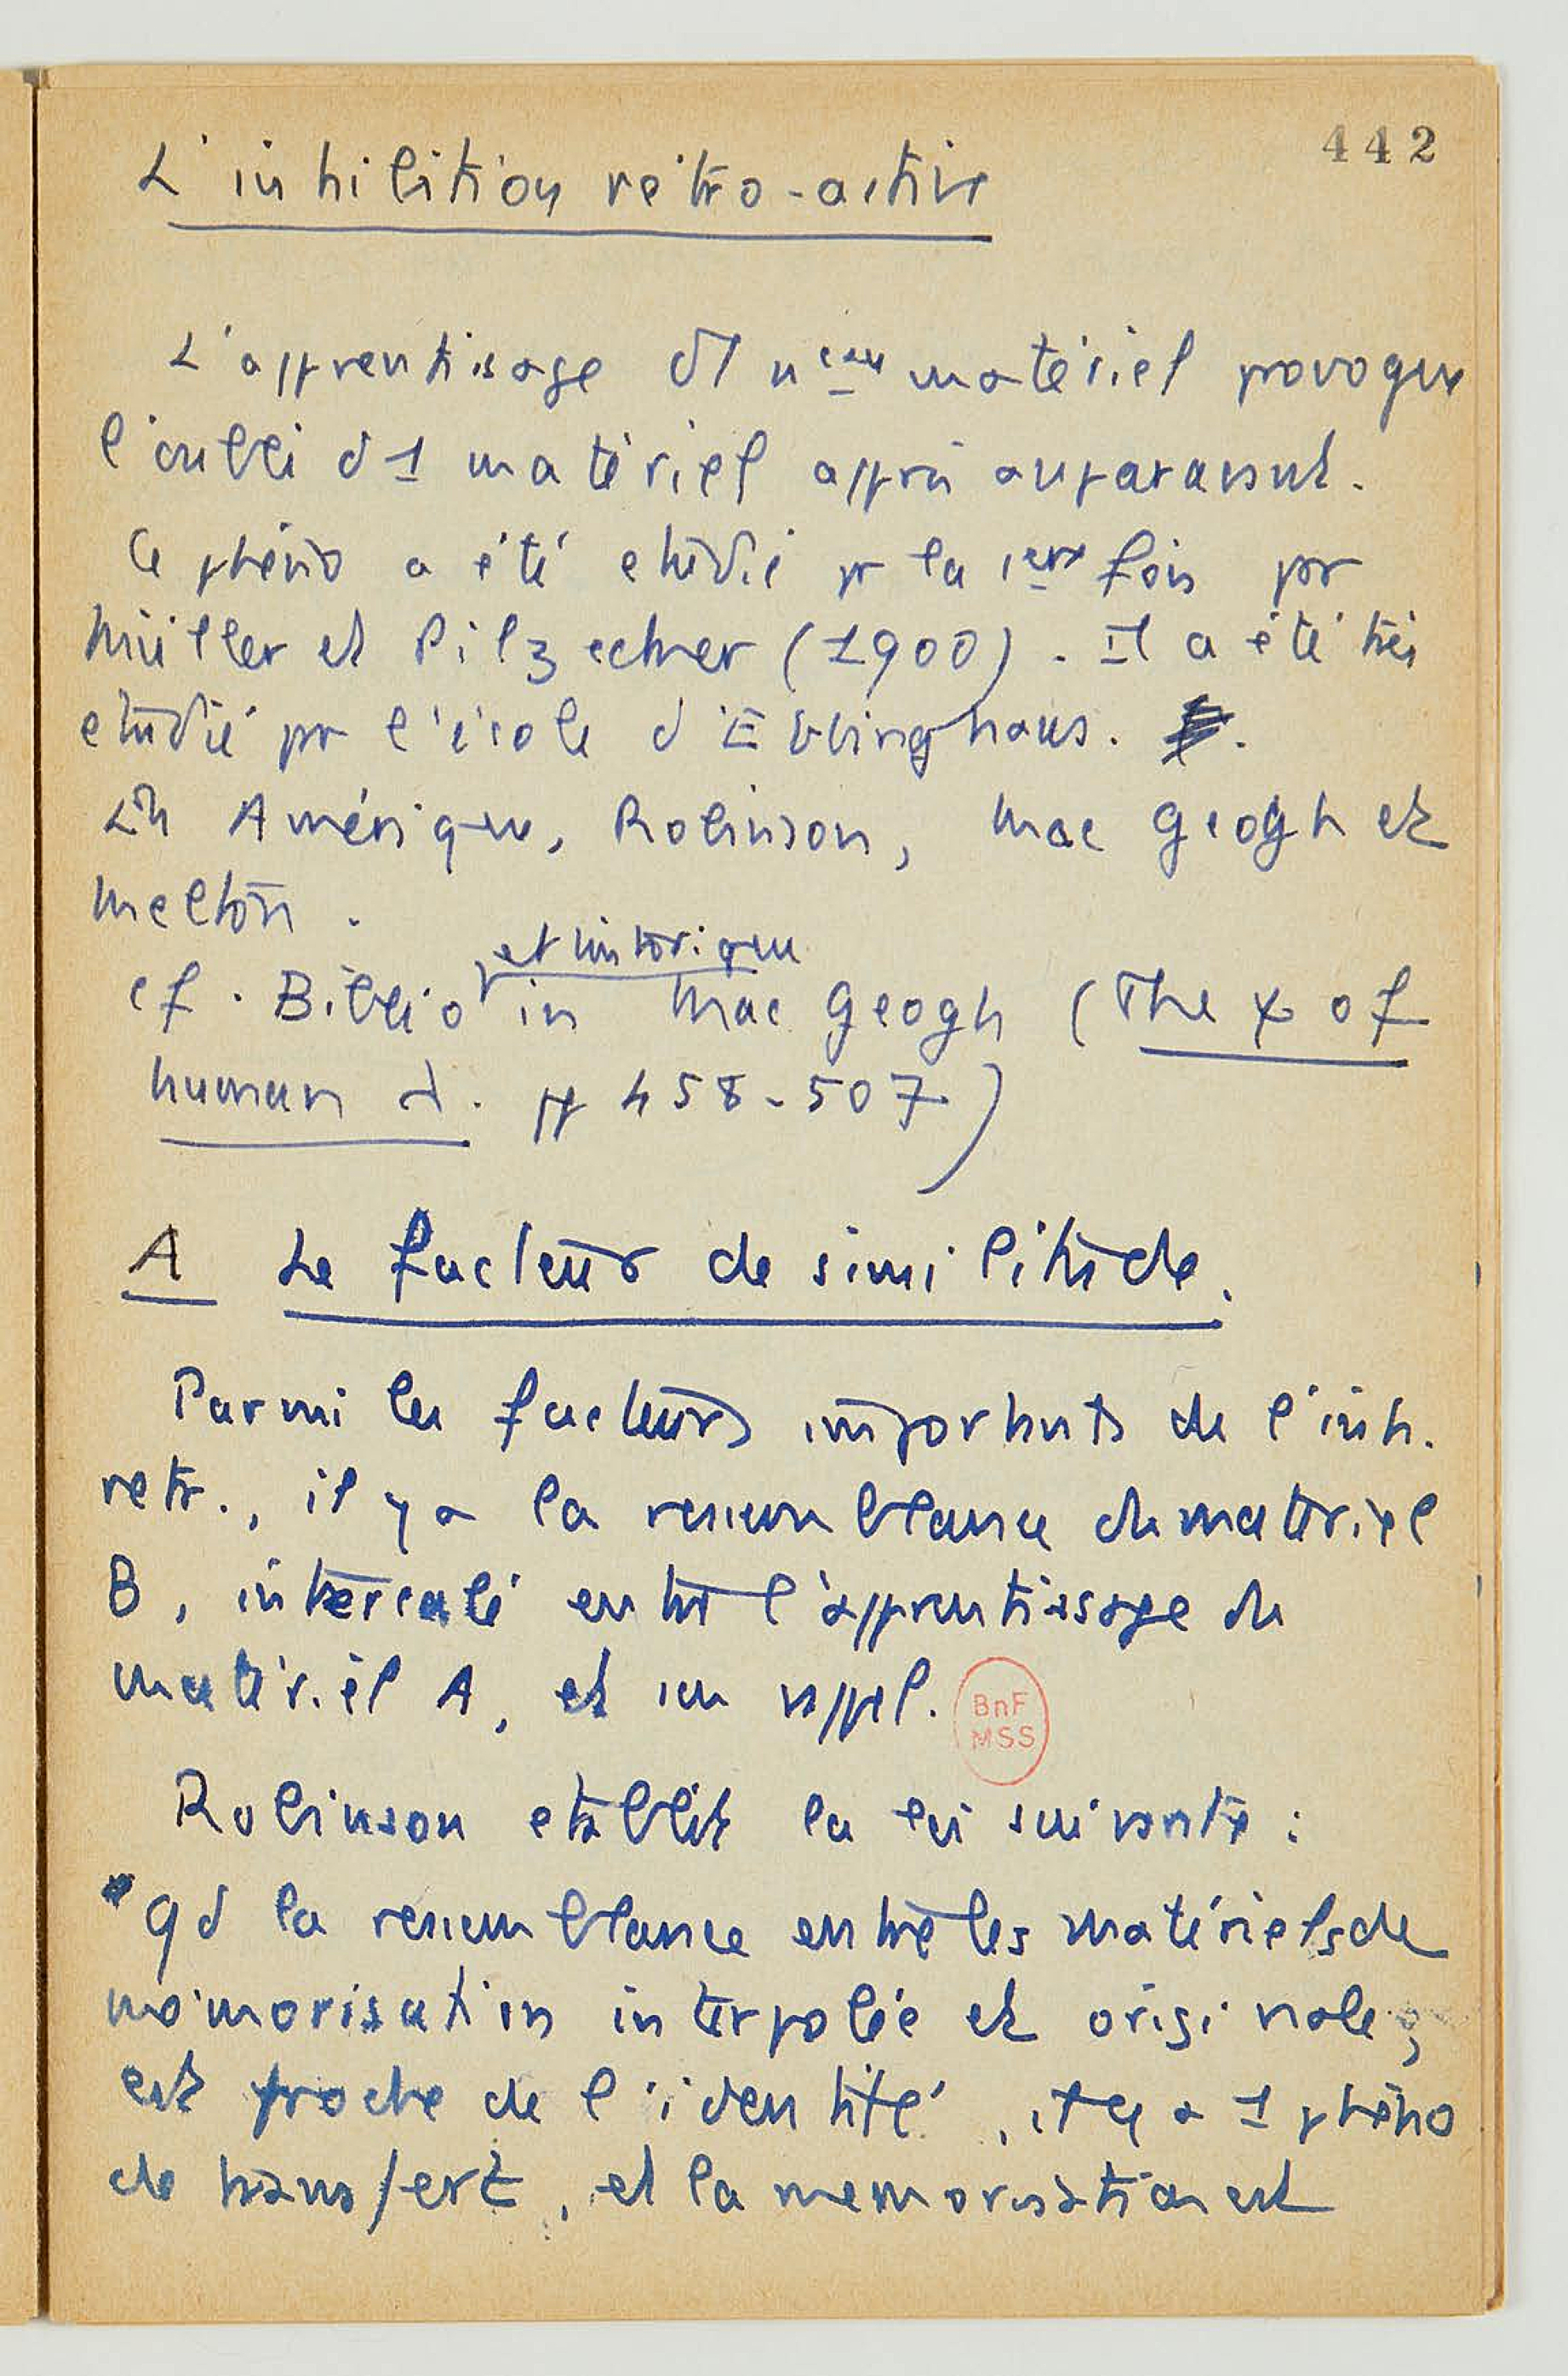 442
L'inhibition rétro-active
L'apprentissage d'1 n^eau matériel provoque
l'oubli d'1 matériel appris auparavant.
Ce phéno a été étudié pr la 1ere fois par
Müller et Pilzecker (1900). Il a été très
étudié par l'école d'Ebbinghaus.
En Amérique, Robinson, Mac Geogh et
Melton.
et historique
cf. Biblio in Mac Geogh (The ψ of
human l. pp 458-507)
A Le facteur de similitude.
Parmi les facteurs importants de l'inh.
retr., il y a la ressemblance du matériel
B, intercalé entre l'apprentissage du
matériel A, et son rappel.
BnF
MSS
Robinson établit la loi suivante :
"qd la ressemblance entre les matériels de
mémorisation interpolée et originale,
est proche de l'identité, il y a 1 phéno
de transfert, et la mémorisation est